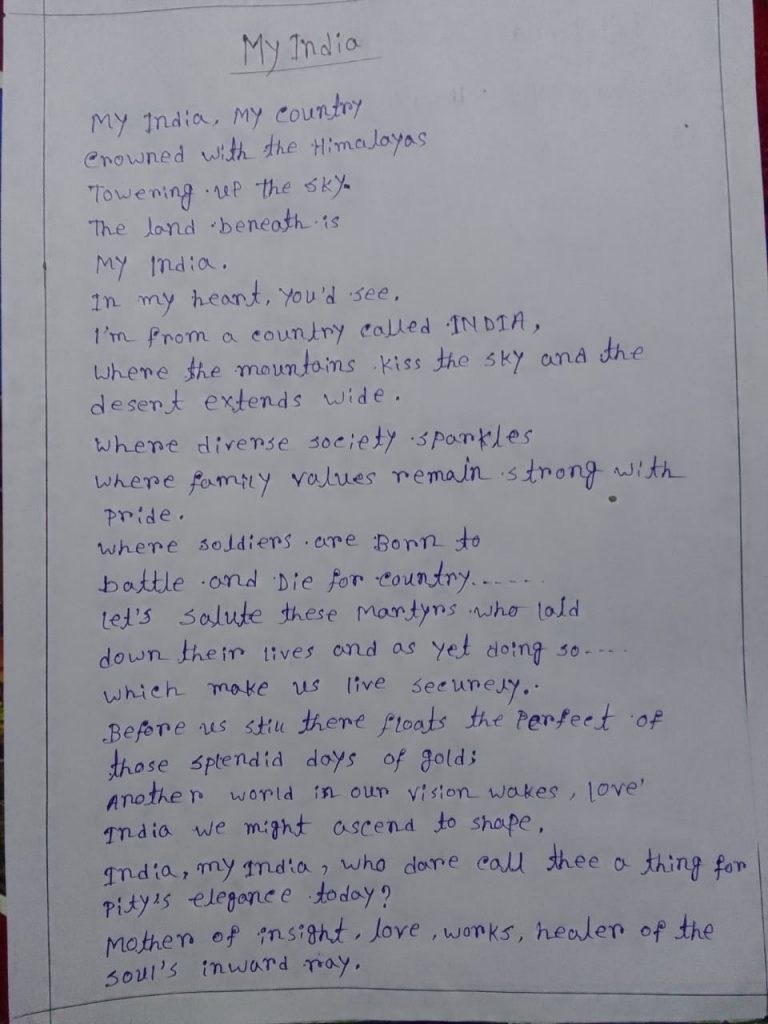 My India
My India, My Country
Crowned with the Himalayas
Towering up the sky.
The land beneath is
My India.
In my heart, You'd see,
I'm from a country called INDIA,
Where the mountains kiss the sky and the
desert extends wide.
Where diverse society sparkles
Where family values remain strong with
Pride.
Where soldiers are Born to
battle and Die for country......
Let's salute these Martyrs who laid
down their lives and as yet doing so....
Which make us live securely..
Before us still there floats the Perfect of
those splendid days of gold;
Another world in our vision wakes, love'
India we might ascend to shape,
India, my India, who dare call thee a thing for
Pity's elegance today?
Mother of insight, love, works, healer of the
soul's inward ray.